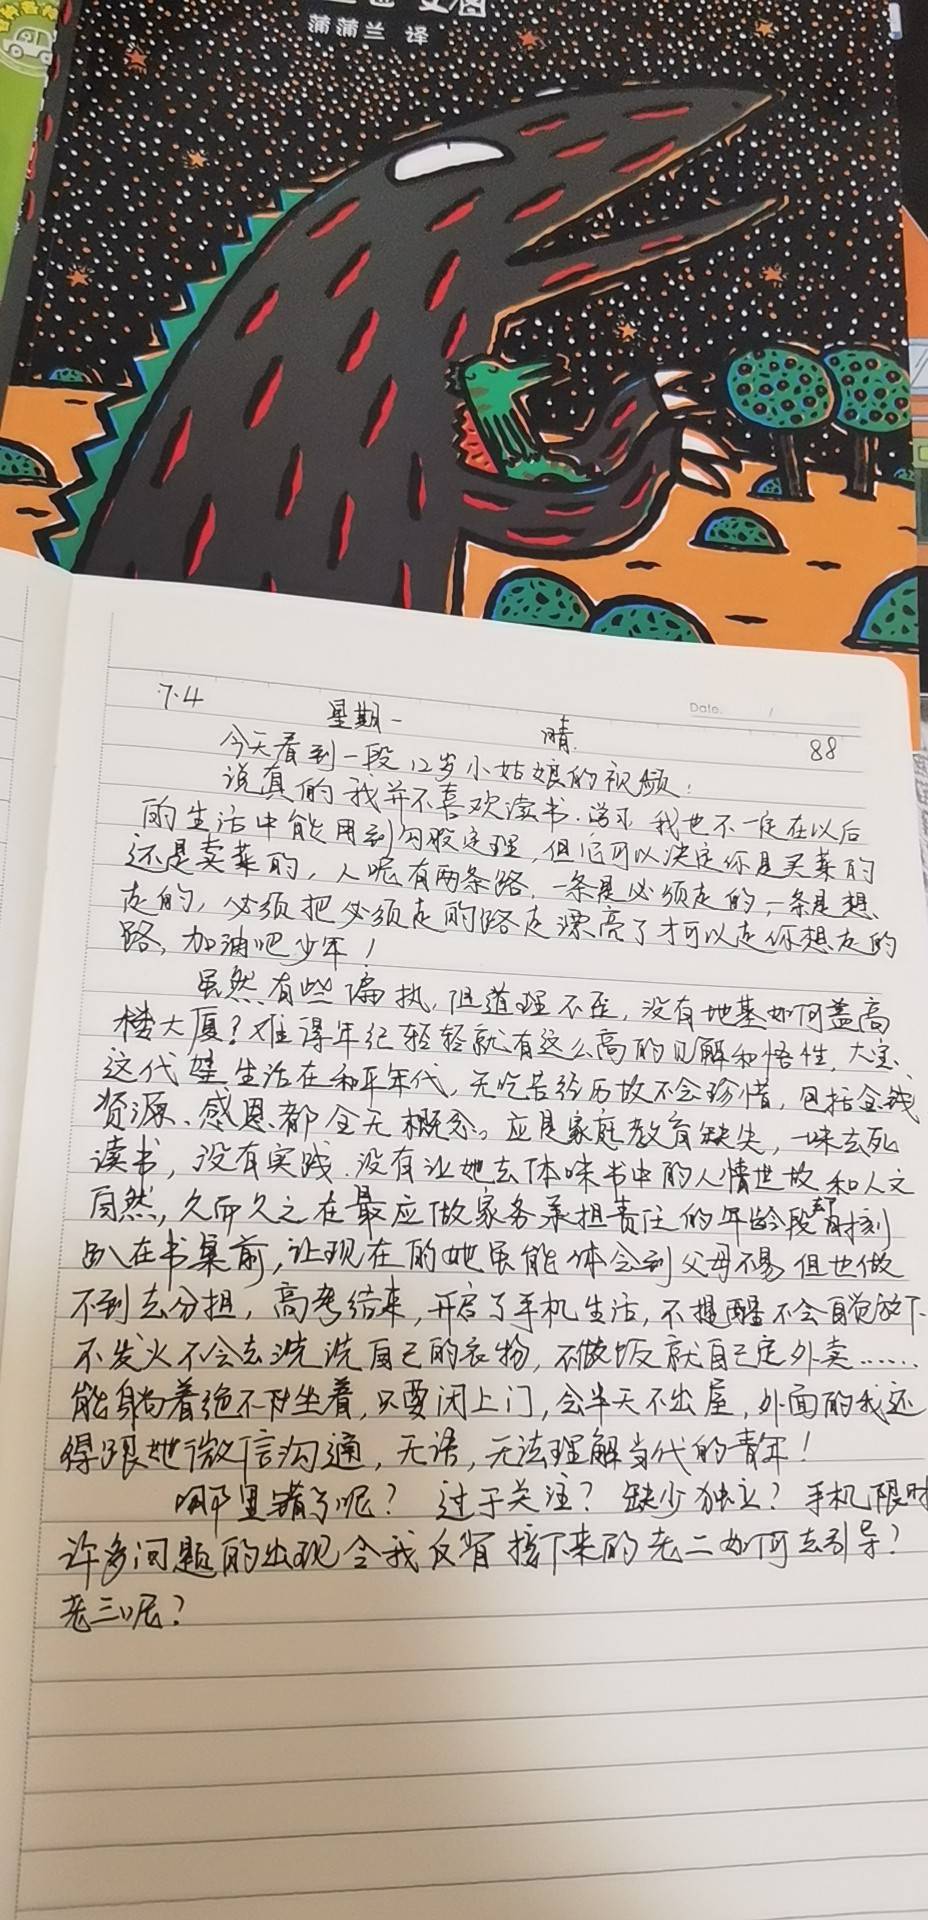 蒲蒲兰 译
Date.
7.4 星期一 晴 88
今天看到一段12岁小姑娘的视频:
说真的我并不喜欢读书.学习 我也不一定在以后
的生活中能用到勾股定理,但它可以决定你是买菜的
还是卖菜的,人呢有两条路,一条是必须走的,一条是想
走的,必须把必须走的路走漂亮了才可以走你想走的
路,加油吧少年!
虽然有些偏执,但道理不歪,没有地基如何盖高
楼大厦?难得年纪轻轻就有这么高的见解和悟性,大宝、
这代娃生活在和平年代,无吃苦经历故不会珍惜,包括金钱
资源、感恩、都全无概念。应是家庭教育缺失,一味去死
读书,没有实践.没有让她去体味书中的人情世故和人文
自然,久而久之在最应做家务承担责任的年龄段却时刻
趴在书桌前,让现在的她虽能体会到父母不易但也做
不到去分担,高考结束,开启了手机生活,不提醒不会自觉放下
不发火不会去洗洗自己的衣物,不做饭就自己定外卖……
能躺着绝不坐着,只要闭上门,会半天不出屋,外面的我还
得跟她微信沟通,无语,无法理解当代的青年!
哪里错了呢?过于关注?缺少独立?手机限时
许多问题的出现令我反省接下来的老二如何去引导?
老三呢?